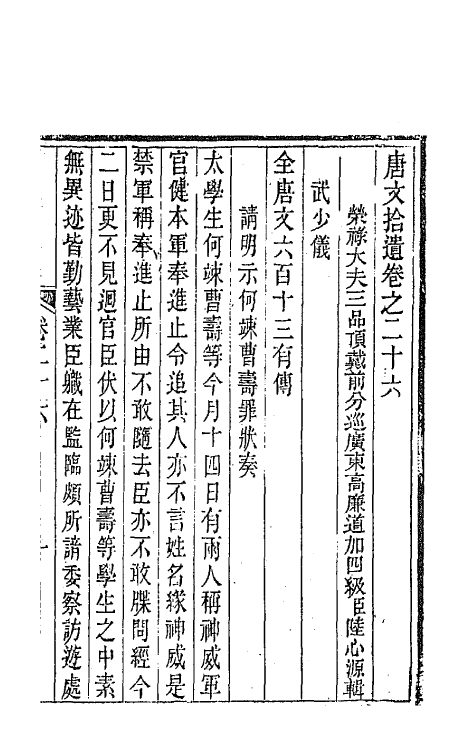 唐文拾遺卷之二十六
榮祿大夫三品頂戴前分巡廣東高廉道加四級臣陸心源輯
武少儀
全唐文六百十三有傳
請明示何竦曹壽罪狀奏
太學生何竦曹壽等今月十四日有兩人稱神威軍
官健本軍奉進止令追其人亦不言姓名緣神威是
禁軍稱奉進止所由不敢隨去臣亦不敢牒問經今
二日更不見迴官臣伏以何竦曹壽等學生之中素
無異迹皆勤藝業臣職在監臨頗所諳委察訪遊處
卷二十六
一